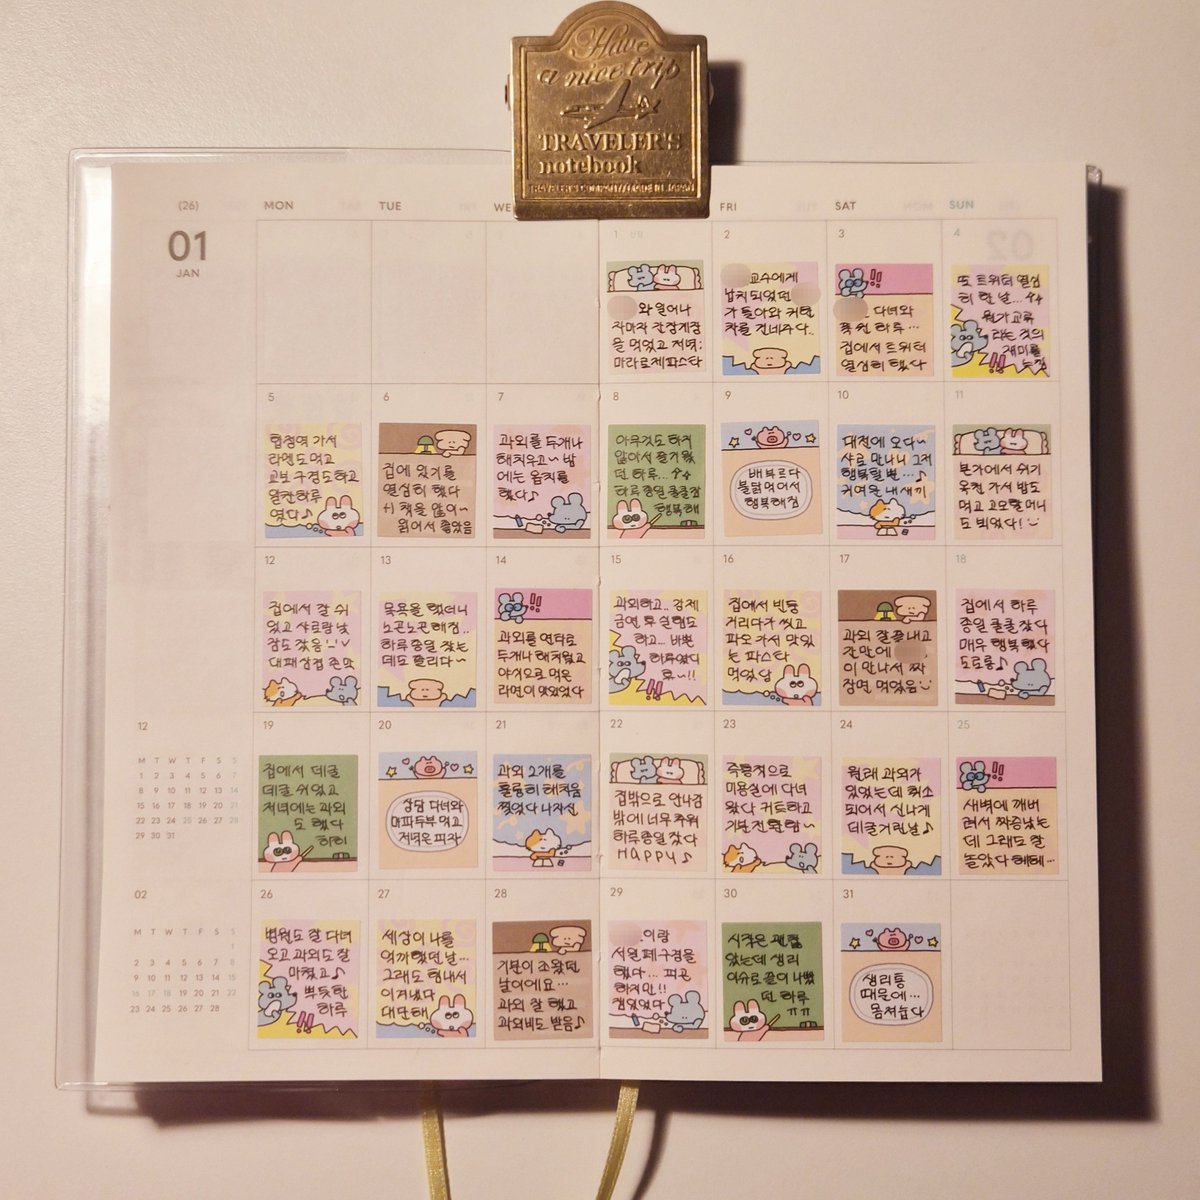 Have
a nice trip
TRAVELER'S
notebook
(26)
MON
TUE
WE
FRI
SAT
SUN
01
JAN
1
와 일어나
자마자 간장게장
을 먹었고 저녁;
마라로제파스타
2
교수에게
납치되었던
가 돌아와 커텐
차를 건네주다..
3
다녀와
폭 한 하루…
집에서 트위터
열심히 했다
4
또 트위터 열심
히 한 날…
뭔가 교류
라는 것의
재미를
느낌
5
합정역 가서
라멘도 먹고
교보 구경도하고
알찬하루
였다♪
6
집에 있기를
열심히 했다
+) 책을 많이~
읽어서 좋았음
7
과외를 두개나
해치우고~ 밤
에는 음치를
했다♪
8
아무것도 하지
않아서 즐거웠
던 하루…
하루종일 쿨쿨잠
행복해
9
배부르다
불닭먹어서
행복해짐
10
대전에 오다~
샤로 만나니 그저
행복할 뿐…♪
귀여운 내새끼
11
본가에서 쉬기
옥천 가서 밥도
먹고 고모할머니
도 뵈었다!
12
집에서 잘 쉬
었고 샤로랑 낮
잠도 잤음
대패삼겹 존맛
13
목욕을 했더니
노곤노곤해짐..
하루종일 잤는
데도 졸리다~
14
과외를 연타로
두개나 해치웠고
야식으로 먹은
라면이 맛있었다
15
과외하고.. 강제
금연 후 실험도
하고… 바쁜
하루였다
후~!!
16
집에서 빈둥
거리다가 씻고
파오 가서 맛있
는 파스타
먹었당
17
과외 잘 끝내고
간만에
이 만나서 짜
장면 먹었음
18
집에서 하루
종일 쿨쿨 잤다
매우 행복했다
도로롱♪
19
집에서 데굴
데굴 쉬었고
저녁에는 과외
도 했다
히히
20
상담 다녀와
마파두부 먹고
저녁은 피자
21
과외 2개를
훌륭히 해치움
쩔었다 나자신
22
집밖으로 안나감
밖에 너무 추워
하루종일 잤다
HAPPY♪
23
즉흥적으로
미용실에 다녀
왔다 커트하고
기분전환함~
24
원래 과외가
있었는데 취소
되어서 신나게
데굴거린날♪
25
새벽에 깨버
려서 짜증났는
데 그래도 잘
놀았다 헤헤…
12
M T W T F S S
1 2 3 4 5 6 7
8 9 10 11 12 13 14
15 16 17 18 19 20 21
22 23 24 25 26 27 28
29 30 31
02
M T W T F S S
1
2 3 4 5 6 7 8
9 10 11 12 13 14 15
16 17 18 19 20 21 22
23 24 25 26 27 28
26
병원도 잘 다녀
오고 과외도 잘
마쳤고♪
뿌듯한
하루
27
세상이 나를
억까했던 날…
그래도 힘내서
이겨냈다
대단해
28
기분이 조왔던
날이에요…
과외 잘 했고
과외비도 받음♪
29
이랑
서원페 구경을
했다… 피곤
하지만!!
잼있었다
30
시작은 괜찮
았는데 생리
이슈로 끝이 나빴
던 하루
ㅠㅠ
31
생리통
때문에…
몸져눕다